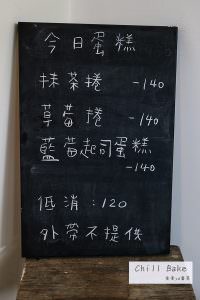 今日蛋糕
抹茶捲 -140
草莓捲 -140
藍莓起司蛋糕
-140
低消：120
外帶不提供
Chill Bake